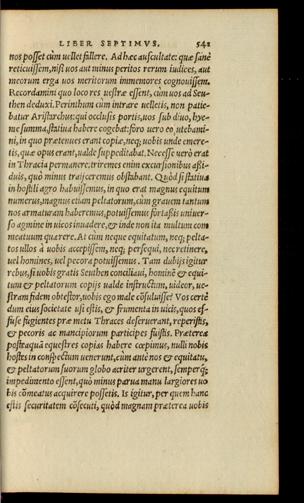 LIBER SEPTIMVS. 541
nos posset cùm uellet fallere. Ad hæc auscultate: quæ sanè
reticuissem, nisi uos aut minus peritos rerum iudices, aut
meorum erga uos meritorum immemores cognouissem.
Recordamini quo loco res uestræ essent, cùm uos ad Seu-
then deduxi. Perinthum cùm intrare uelletis, non patie-
batur Aristarchus: qui occlusis portis, uos sub diuo, hye-
me summa, statiua habere cogebat: foro uero eo, utebami-
ni, in quo prætenues erant copiæ, neq; uobis unde emere-
tis, quæ opus erant, ualde suppeditabat. Necesse uerò erat
in Thracia permanere: triremes enim excursionibus aßi-
duis, quò minus traijceremus obstabant. Quòd si statiua
in hostili agro habuissemus, in quo erat magnus equitum
numerus, magnus etiam peltatorum, cùm grauem tantum
nos armaturam haberemus, potuissemus fortaßis uniuer-
so agmine in uicos inuadere, & inde non ita multum com
meatuum quærere. At cùm neque equitatum, neq; pelta-
tos ullos à uobis accepissem, neq; persequi, nec retinere,
uel homines, uel pecora potuissemus. Tam dubijs igitur
rebus, si uobis gratis Seuthen conciliaui, hominē & equi-
tum & peltatorum copijs ualde instructum, uideor, ue-
stram fidem obtestor, uobis ego male cōsuluisse? Vos certè
dum eius societate usi estis, & frumenta in uicis, quos ef-
fuse fugientes præ metu Thraces deseruerant, reperistis,
& pecoris ac mancipiorum participes fuistis. Præterea
postea quā equestres copias habere cœpimus, nulli nobis
hostes in conspectum uenerunt, cùm antè nos & equitatu,
& peltatorum suorum globo acriter urgerent, semperq;
impedimento essent, quò minus parua manu largiores uo
bis cōmeatus acquirere possetis. Is igitur, per quem hanc
estis securitatem cōsecuti, quòd magnam præterea uobis